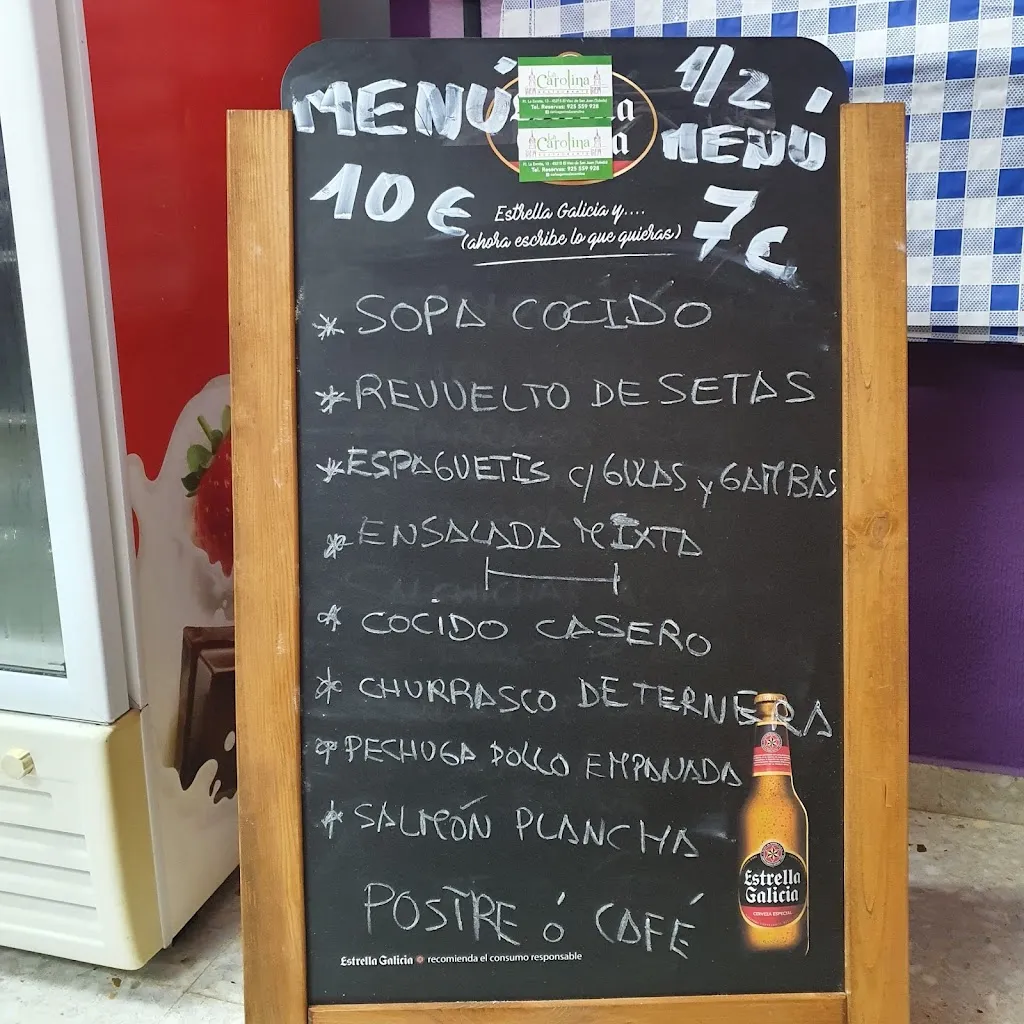 MENÚ
10 €
1/2
MENÚ
7 €
La Carolina
RESTAURANTE
Tel. Reservas: 925 559 928
La Carolina
RESTAURANTE
Tel. Reservas: 925 559 928
Estrella Galicia y....
(ahora escribe lo que quieras)
* SOPA COCIDO
* REVUELTO DE SETAS
* ESPAGUETIS c/ GULAS y GAMBAS
* ENSALADA MIXTA
* COCIDO CASERO
* CHURRASCO DE TERNERA
* PECHUGA POLLO EMPANADA
* SALMÓN PLANCHA
POSTRE ó CAFÉ
Estrella
Galicia
CERVEZA ESPECIAL
Estrella Galicia recomienda el consumo responsable